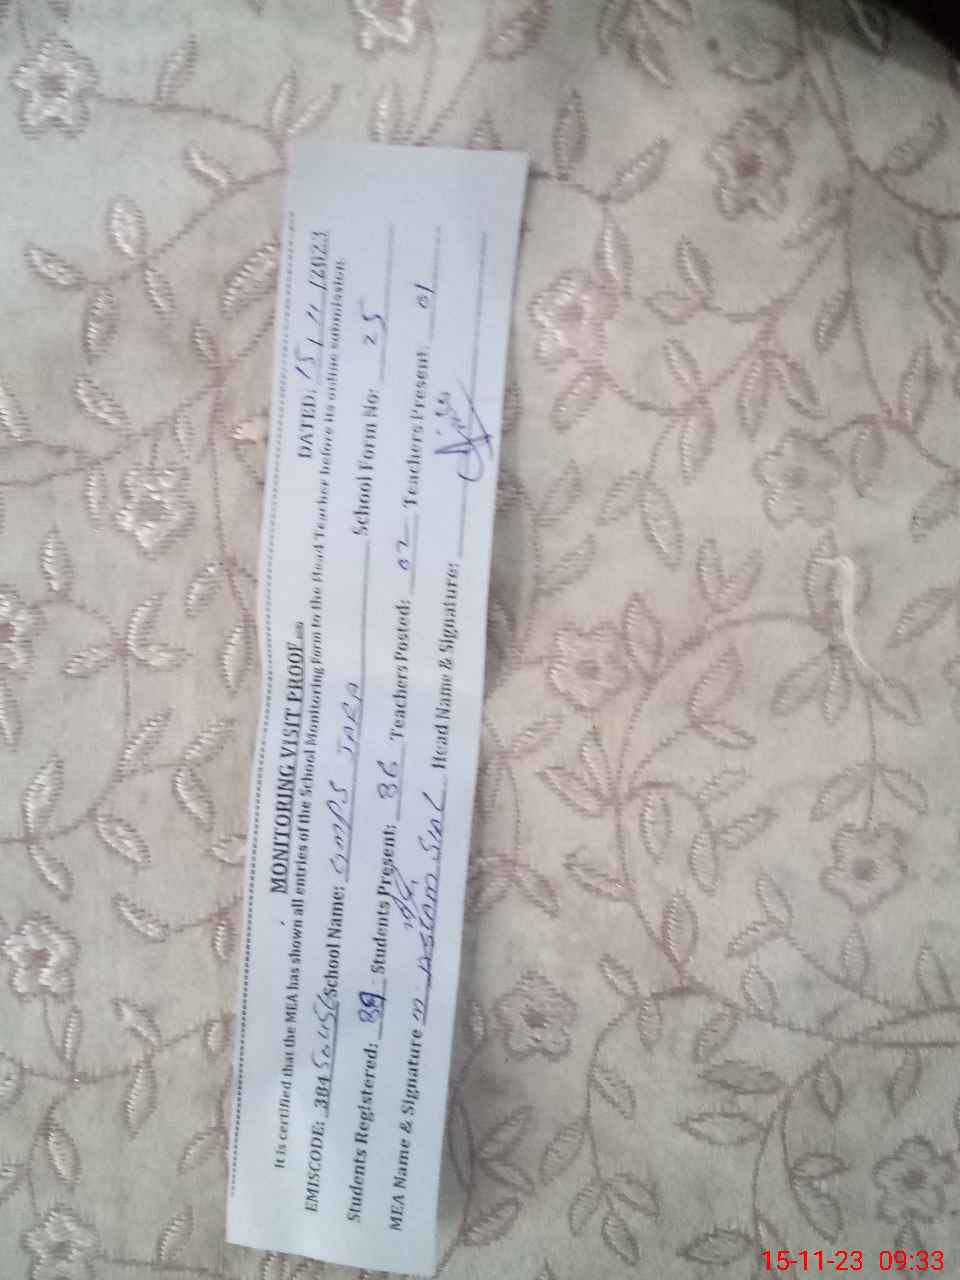 MONITORING VISIT PROOF
DATED: 15/11/2023
It is certified that the MEA has shown all entries of the School Monitoring Form to the Head Teacher before its online submission.
EMISCODE: School Name: GMPS JARA School Form No: 25
Students Registered: 89 Students Present: 86 Teachers Posted: 02 Teachers Present: 01
MEA Name & Signature M. Aslam Head Name & Signature:
15-11-23 09:33